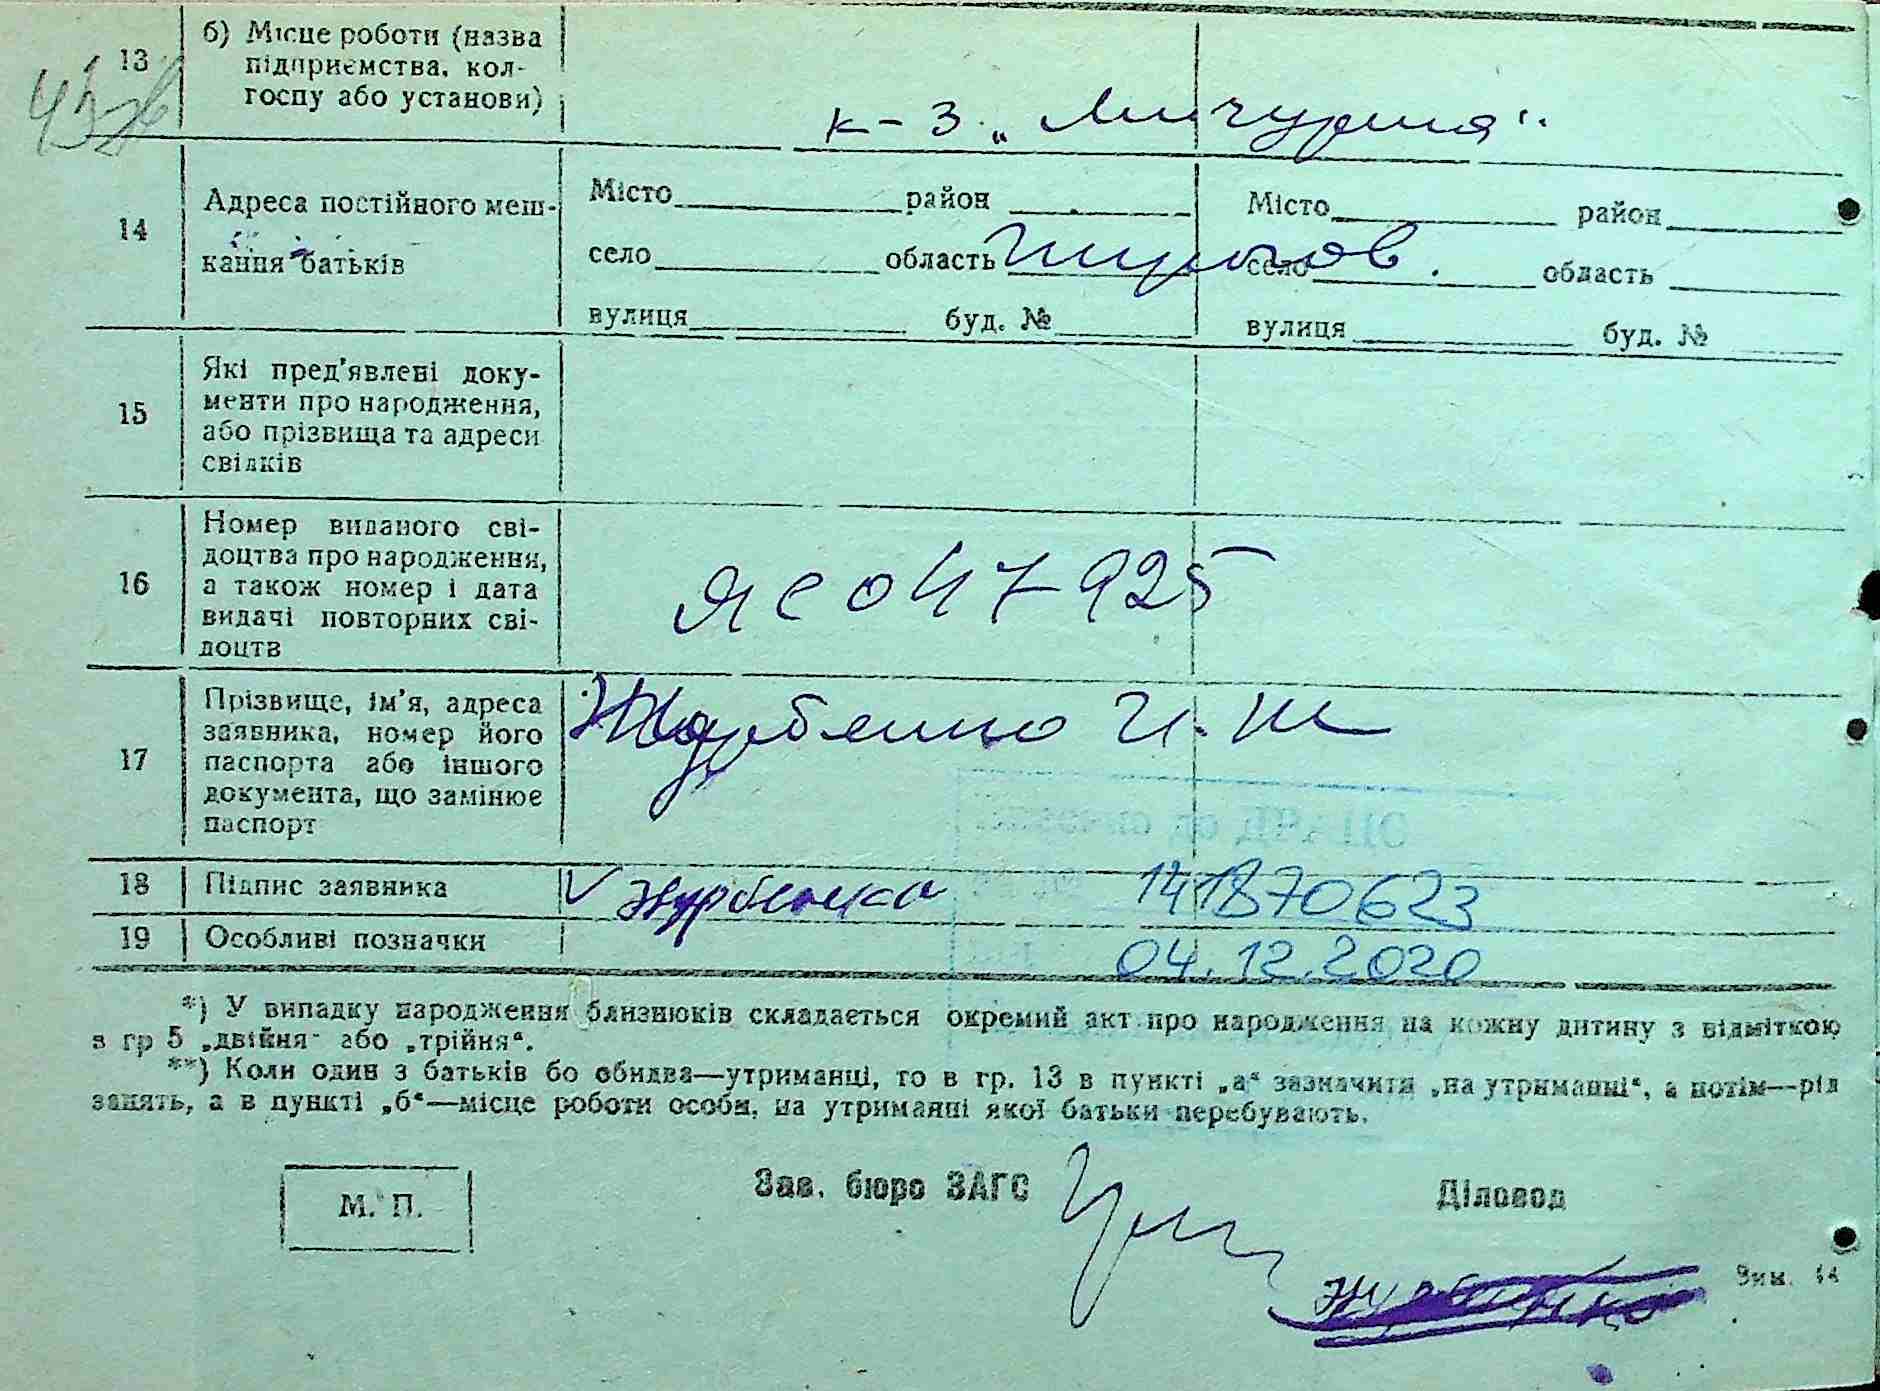 13
б) Місце роботи (назва
підприємства, кол-
госпу або установи)
к-з „Мичурина"
14
Адреса постійного меш-
кання батьків
Місто район
село область
вулиця буд. №
Місто район
село область
вулиця буд. №
15
Які пред'явлені доку-
менти про народження,
або прізвища та адреси
свідків
16
Номер виданого сві-
доцтва про народження,
а також номер і дата
видачі повторних сві-
доцтв
ЯС 047925
17
Прізвище, ім'я, адреса
заявника, номер його
паспорта або іншого
документа, що замінює
паспорт
18
Підпис заявника
V Журбенко
141870623
19
Особливі позначки
04.12.2020
*) У випадку народження близнюків складається окремий акт про народження на кожну дитину з відміткою
в гр 5 „двійня" або „трійня".
**) Коли один з батьків бо обидва—утриманці, то в гр. 13 в пункті „а" зазначити „на утриманні", а потім—рід
занять, а в пункті „б"—місце роботи особи, на утриманні якої батьки перебувають.
М. П.
Зав. бюро ЗАГС
Діловод
Журбенко